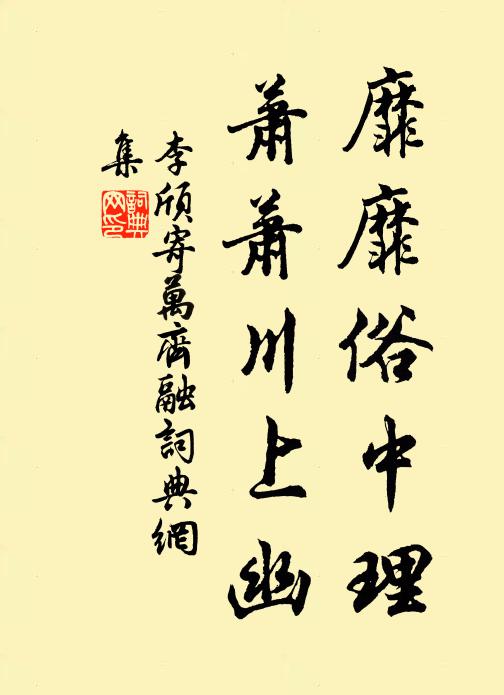 靡靡俗中理
蕭蕭川上幽
李頎寄萬齊融詞典網
集
詞典
网印